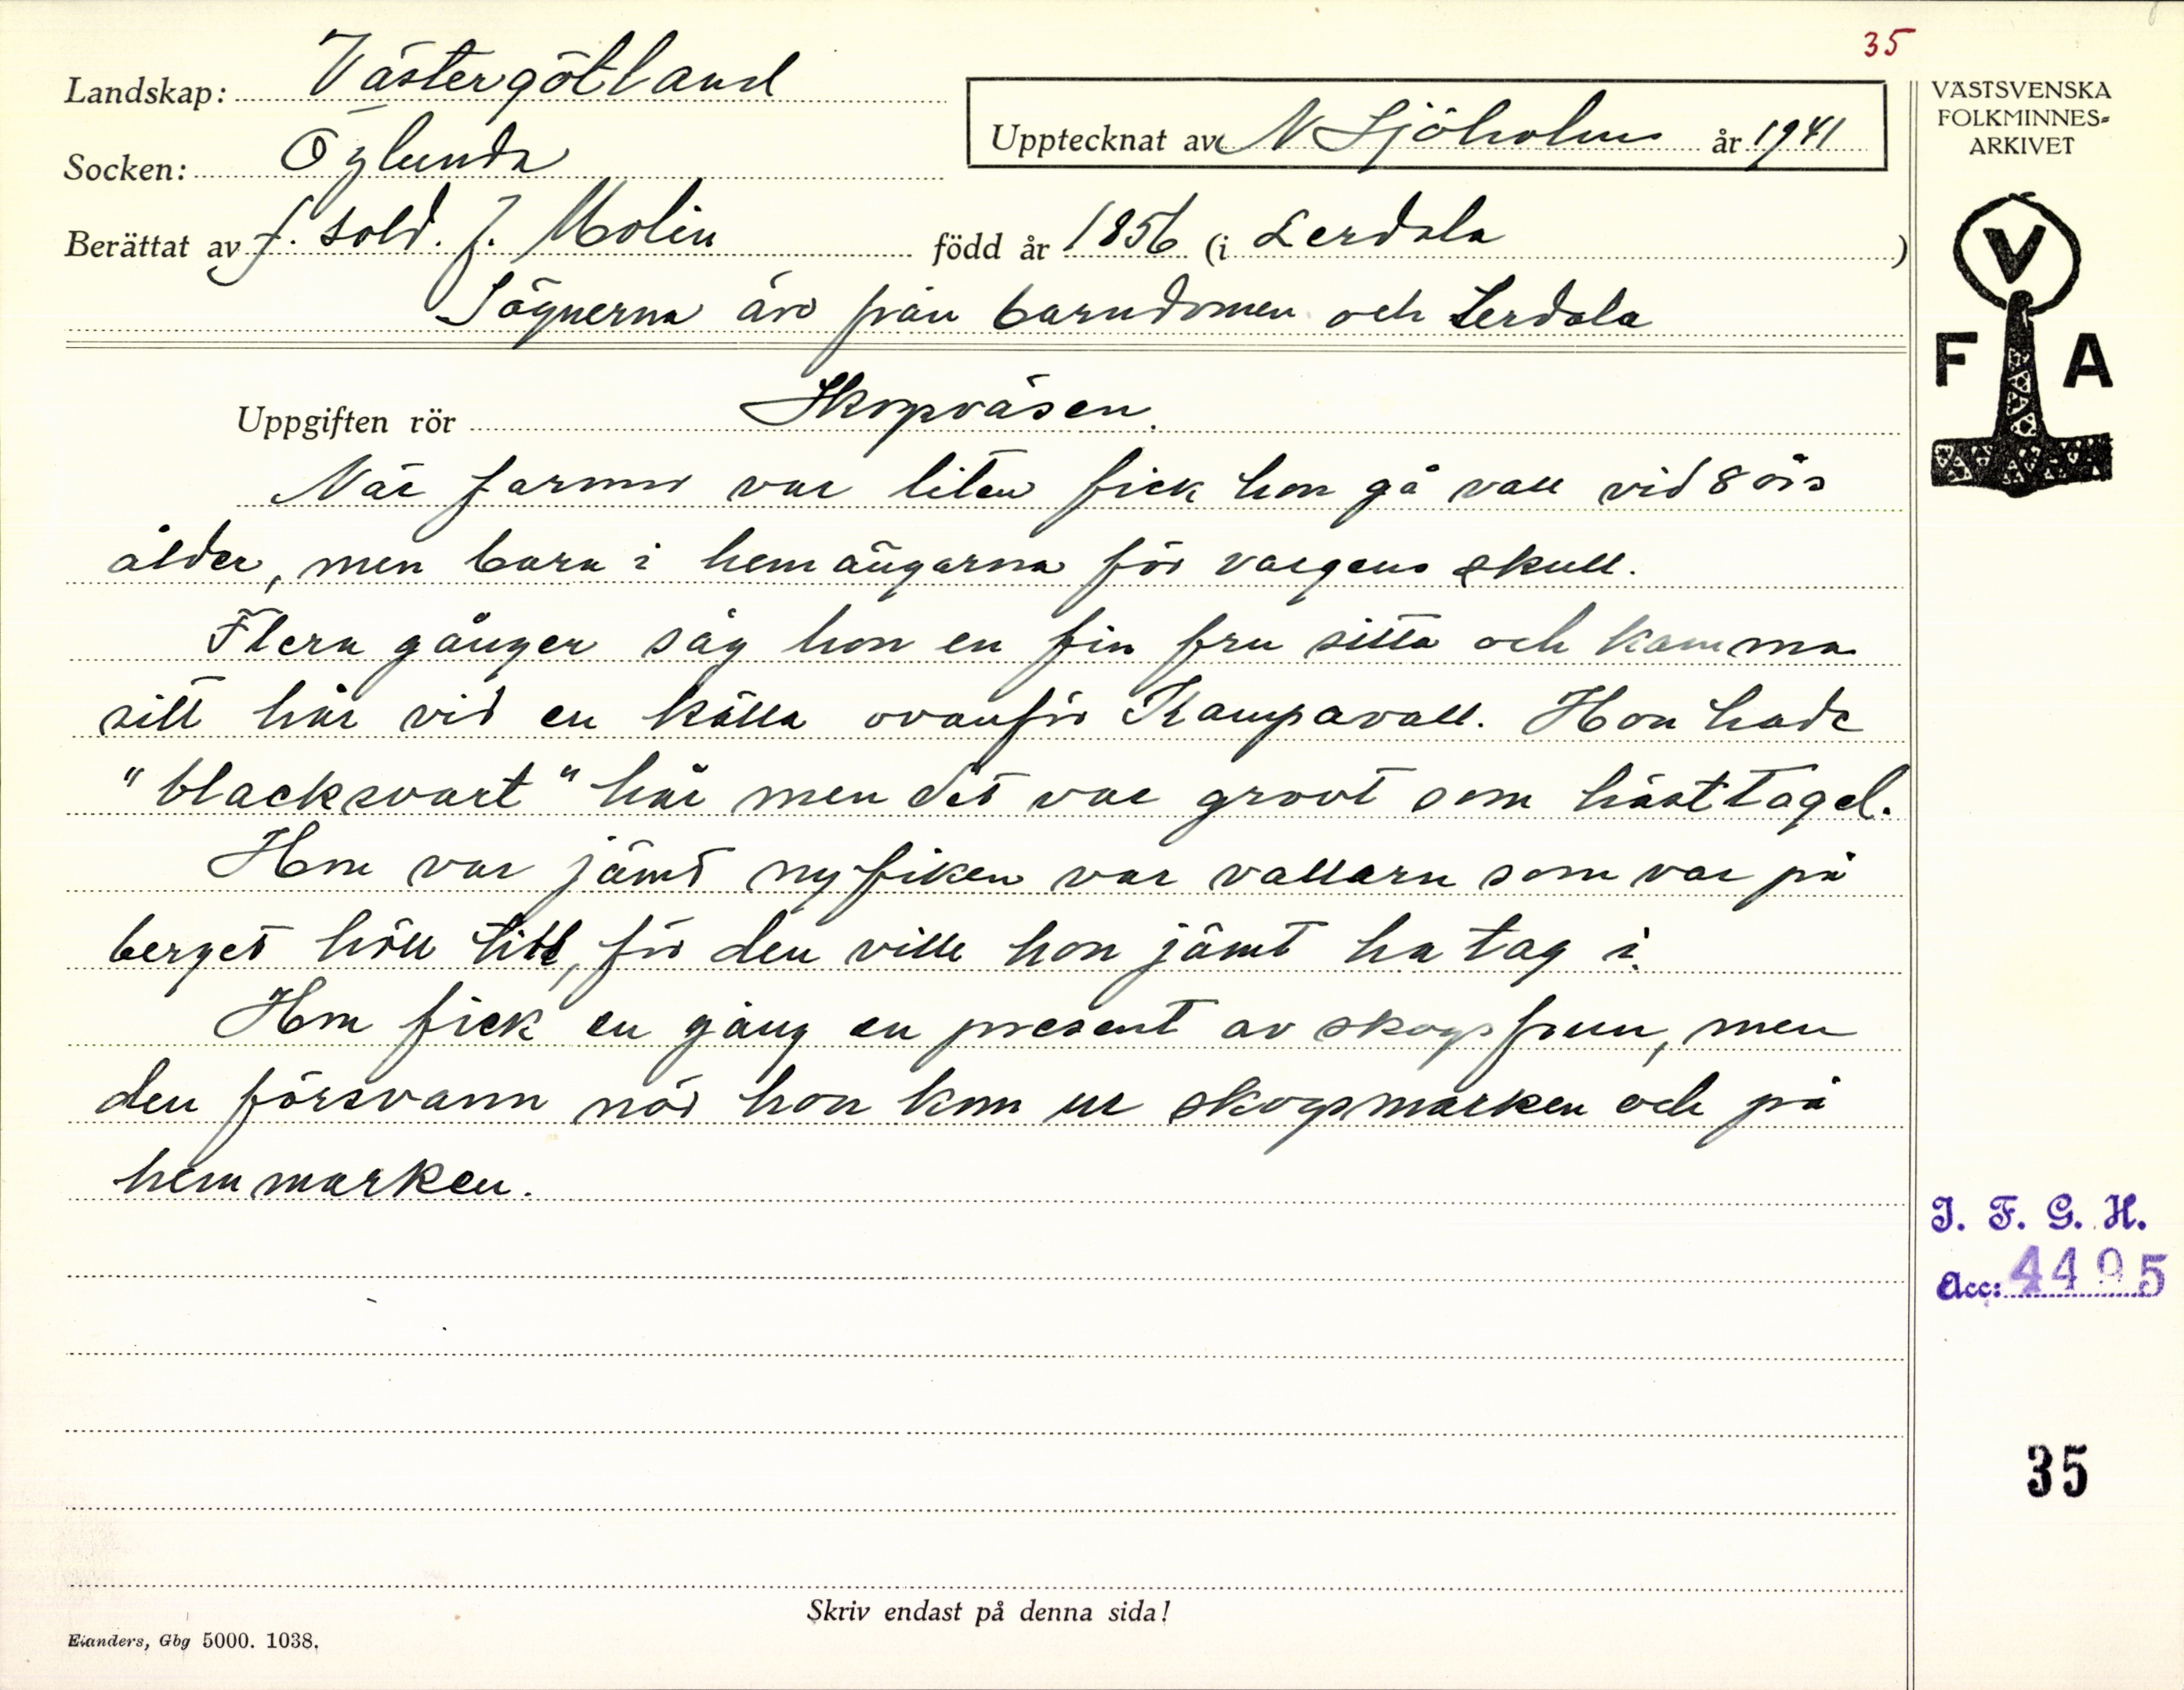 35
Landskap: Västergötland
Socken: Öglunda
Upptecknat av N Sjöholm år 1941
Berättat av f. sold. J. Molin född år 1856 (i Lerdala)
Sägnerna äro från barndomen och Lerdala
VÄSTSVENSKA
FOLKMINNES=
ARKIVET
V
F A
Uppgiften rör Skogväsen.
När farmor var liten fick hon gå vall vid 8 års
ålder, men bara i hemängarna för vargens skull.
Flera gånger såg hon en fin fru sitta och kamma
sitt hår vid en källa ovanför Kampavall. Hon hade
"blacksvart" hår men det var grovt som hästtagel.
Hon var jämt nyfiken var vallarn som var på
berget höll till, för den ville hon jämt ha tag i.
Hon fick en gång en present av skogsfrun, men
den försvann när hon kom ur skogsmarken och på
hemmarken.
I. F. G. H.
Acc: 4495
35
Skriv endast på denna sida!
Elanders, Gbg 5000. 1038.